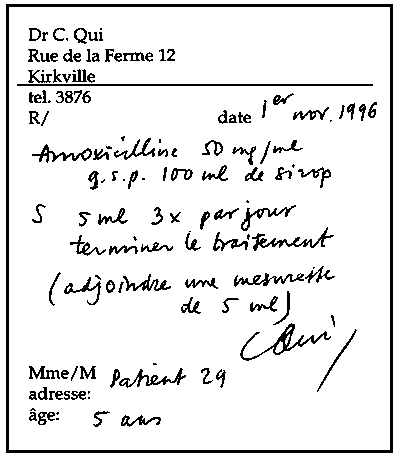 Dr C. Qui
Rue de la Ferme 12
Kirkville
tel. 3876
R/ date 1er nov. 1996
Amoxicilline 50 mg/ml
q.s.p. 100 ml de sirop
S 5 ml 3x par jour
terminer le traitement
(adjoindre une mesurette
de 5 ml)
CQui
Mme/M Patient 29
adresse:
âge: 5 ans